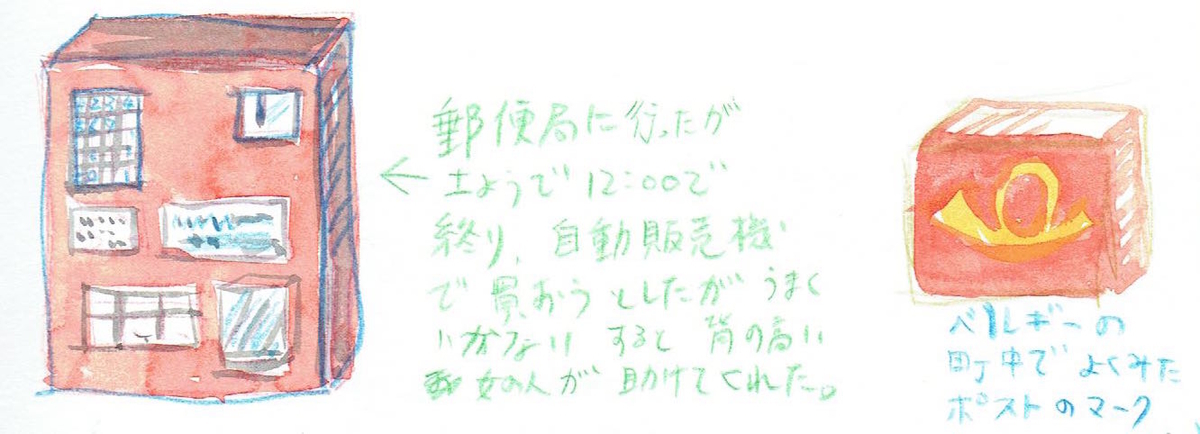 郵便局に行ったが
土ようで12:00で
終り、自動販売機
で買おうとしたがうまく
いかない すると背の高い
女の人が助けてくれた。
ベルギーの
町中でよくみた
ポストのマーク